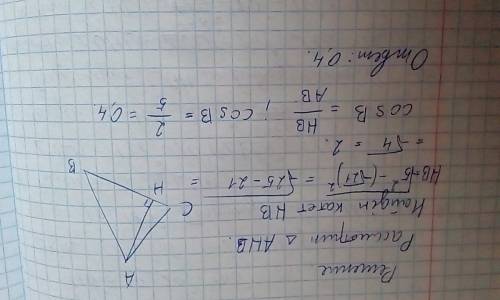 Решение
Рассмотрим △ AHB.
Найдём катет HB
HB=√5² - (√21)² = √25-21 =
= √4 = 2.
cos B = HB/AB ; cos B = 2/5 = 0,4.
Ответ: 0,4.
A
B
H
C